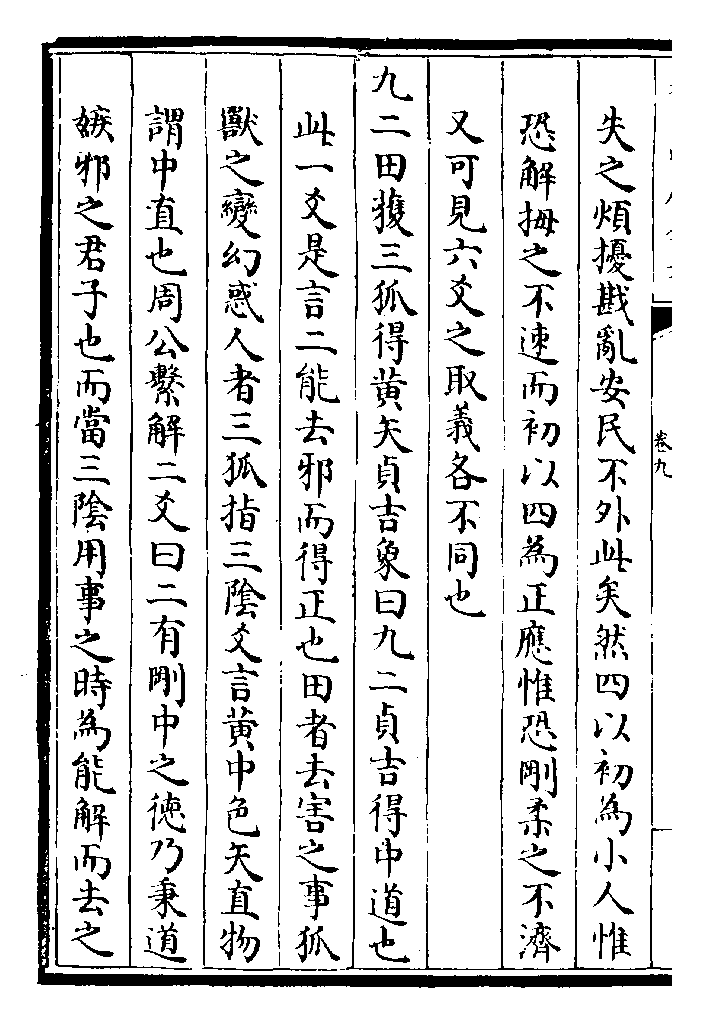 失之煩擾戡亂安民不外此矣然四以初為小人惟
恐解拇之不速而初以四為正應惟恐剛柔之不濟
又可見六爻之取義各不同也
九二田獲三狐得黄矢貞吉象曰九二貞吉得中道也
此一爻是言二能去邪而得正也田者去害之事狐
獸之變幻惑人者三狐指三陰爻言黄中色矢直物
謂中直也周公繫解二爻曰二有剛中之徳乃秉道
嫉邪之君子也而當三陰用事之時為能解而去之
卷九